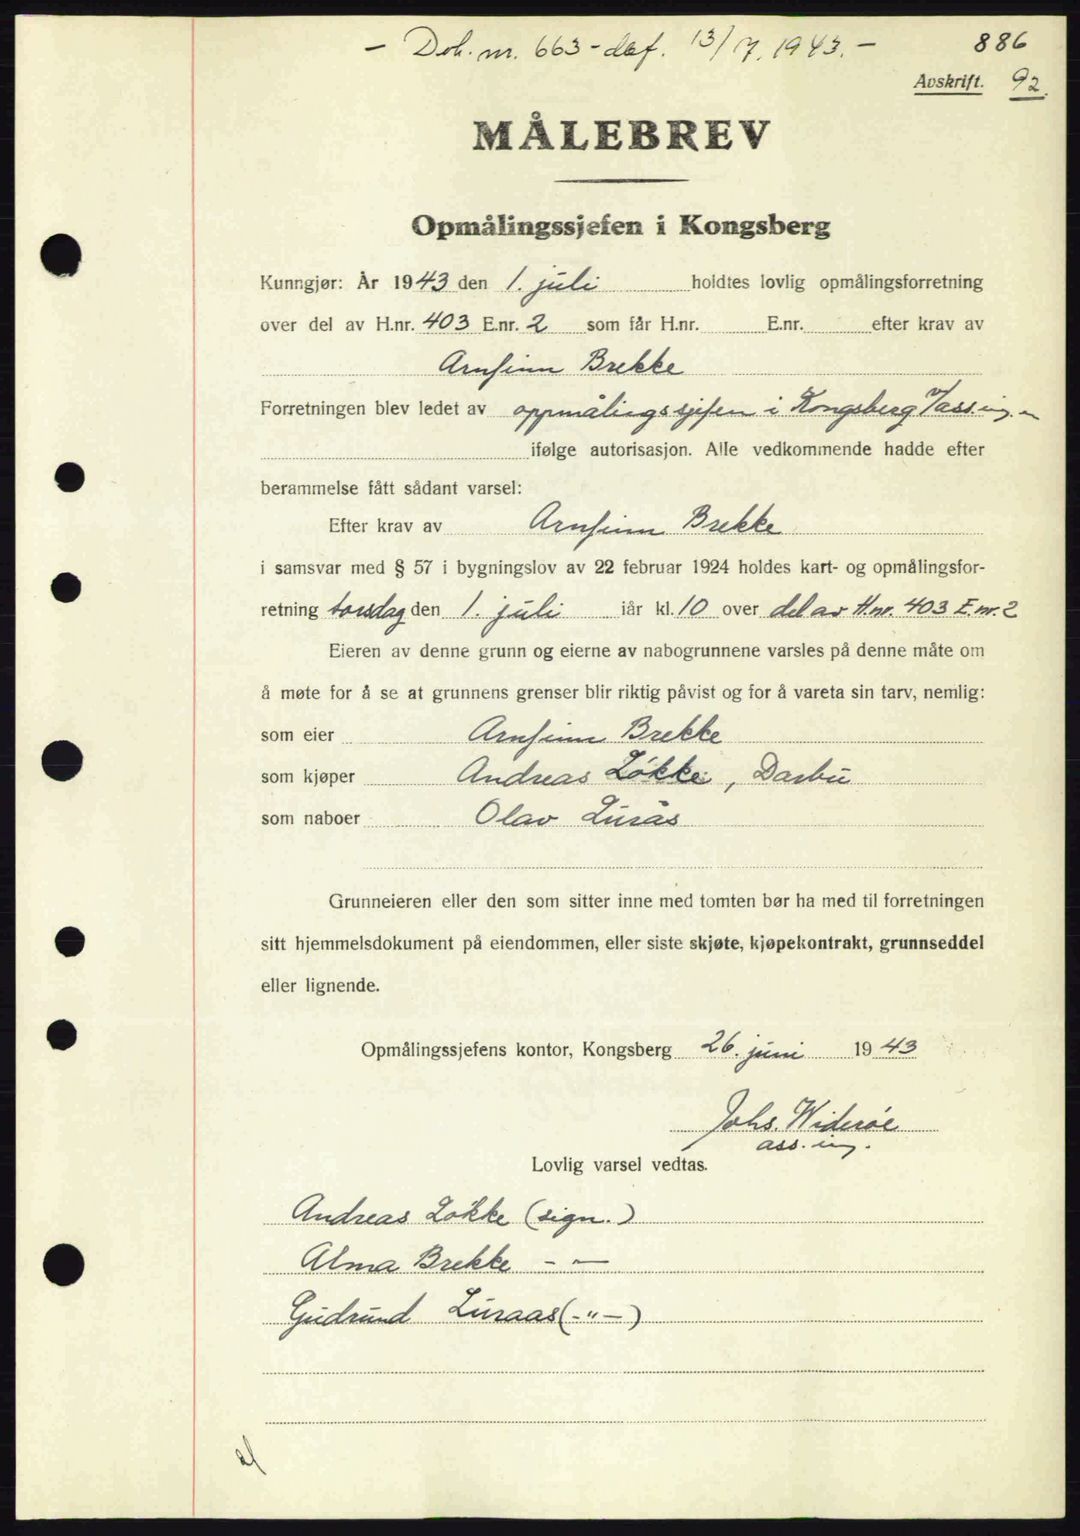 - Dok. nr. 663 - def. 13/7. 1943. -
886
Avskrift. 92.
MÅLEBREV
Opmålingssjefen i Kongsberg
Kunngjør: År 1943 den 1. juli holdtes lovlig opmålingsforretning
over del av H.nr. 403 E.nr. 2 som får H.nr. E.nr. efter krav av
Arnfinn Brekke
Forretningen blev ledet av oppmålingssjefen i Kongsberg v/ass.ing.
ifølge autorisasjon. Alle vedkommende hadde efter
berammelse fått sådant varsel:
Efter krav av Arnfinn Brekke
i samsvar med § 57 i bygningslov av 22 februar 1924 holdes kart- og opmålingsfor-
retning torsdag den 1. juli iår kl. 10 over del av H.nr. 403 E.nr. 2
Eieren av denne grunn og eierne av nabogrunnene varsles på denne måte om
å møte for å se at grunnens grenser blir riktig påvist og for å vareta sin tarv, nemlig:
som eier Arnfinn Brekke
som kjøper Andreas Løkke, Darbu
som naboer Olav Lurås
Grunneieren eller den som sitter inne med tomten bør ha med til forretningen
sitt hjemmelsdokument på eiendommen, eller siste skjøte, kjøpekontrakt, grunnseddel
eller lignende.
Opmålingssjefens kontor, Kongsberg 26. juni 1943
Johs. Widerøe
ass. ing.
Lovlig varsel vedtas.
Andreas Løkke (sign.)
Alma Brekke - —
Gudrund Luraas (-"-)